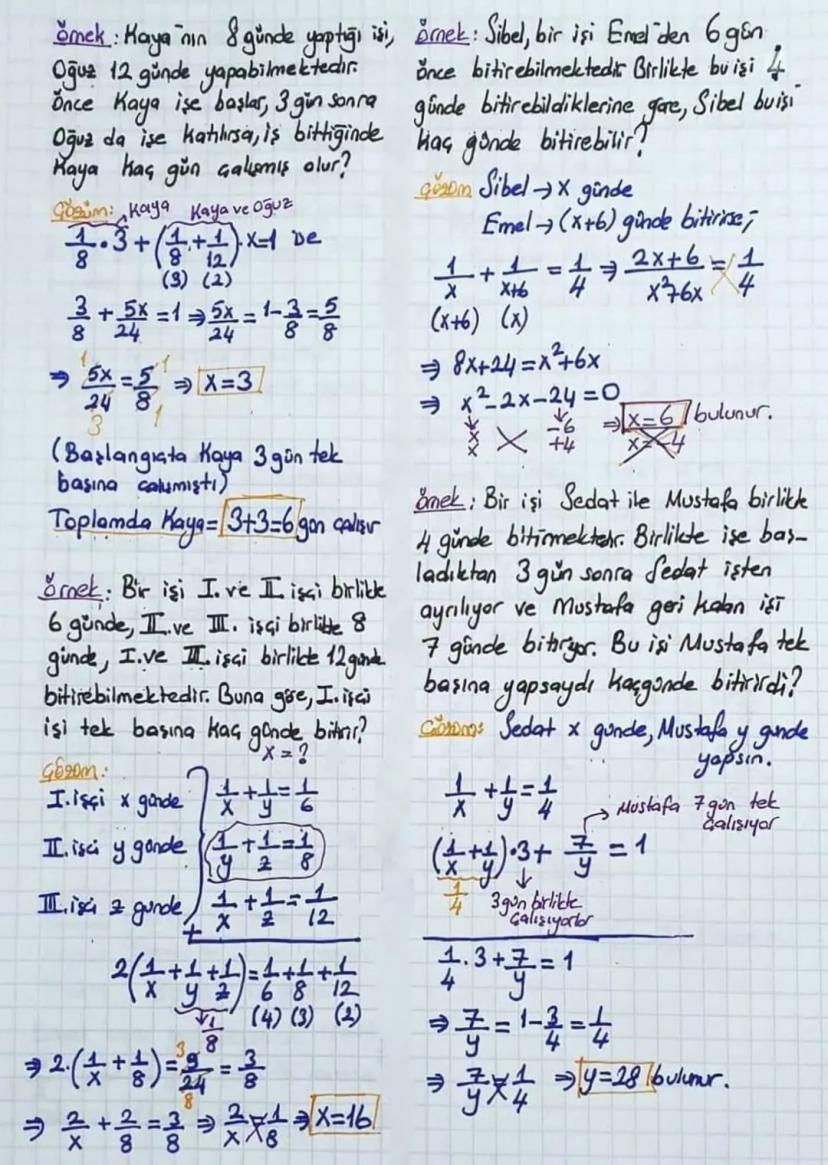 Örnek: Kaya'nın 8 günde yaptığı işi,
Oğuz 12 günde yapabilmektedir.
Önce Kaya işe başlar, 3 gün sonra
Oğuz da işe katılırsa, iş bittiğinde
Kaya kaç gün çalışmış olur?
Çözüm: Kaya Kaya ve Oğuz
1/8 · 3 + (1/8 + 1/12) · x = 1 'De
(3) (2)
3/8 + 5x/24 = 1 ⇒ 5x/24 = 1 - 3/8 = 5/8
⇒ 5x/24 = 5/8 ⇒ x=3
1 1
3 1
(Başlangıçta Kaya 3 gün tek
başına çalışmıştı)
Toplamda Kaya = 3+3=6 gün çalışır
Örnek: Bir işi I. ve II. işçi birlikte
6 günde, II. ve III. işçi birlikte 8
günde, I. ve III. işçi birlikte 12 günde
bitirebilmektedir. Buna göre, I. işçi
işi tek başına kaç günde bitirir?
x = ?
Çözüm:
I. işçi x günde 1/x + 1/y = 1/6
II. işçi y günde 1/y + 1/z = 1/8
III. işçi z günde 1/x + 1/z = 1/12
+
2(1/x + 1/y + 1/z) = 1/6 + 1/8 + 1/12
1/8 (4) (3) (2)
⇒ 2·(1/x + 1/8) = 9/24 = 3/8
3
8
⇒ 2/x + 2/8 = 3/8 ⇒ 2/x = 1/8 ⇒ x=16
Örnek: Sibel, bir işi Emel'den 6 gün
önce bitirebilmektedir. Birlikte bu işi 4
günde bitirebildiklerine göre, Sibel bu işi
kaç günde bitirebilir?
Çözüm Sibel → x günde
Emel → (x+6) günde bitirirse;
1/x + 1/x+6 = 1/4 ⇒ 2x+6/x²+6x = 1/4
(x+6) (x)
⇒ 8x+24 = x²+6x
⇒ x²-2x-24=0
x -6 ⇒ x=6 bulunur.
x +4 x=-4
Örnek: Bir işi Sedat ile Mustafa birlikte
4 günde bitirmektedir. Birlikte işe baş-
ladıktan 3 gün sonra Sedat işten
ayrılıyor ve Mustafa geri kalan işi
7 günde bitiriyor. Bu işi Mustafa tek
başına yapsaydı kaç günde bitirirdi?
Çözüm: Sedat x günde, Mustafa y günde
yapsın.
1/x + 1/y = 1/4
Mustafa 7 gün tek
çalışıyor
(1/x + 1/y) · 3 + 7/y = 1
1/4 3 gün birlikte
çalışıyorlar
1/4 · 3 + 7/y = 1
⇒ 7/y = 1 - 3/4 = 1/4
⇒ 7/y = 1/4 ⇒ y=28 bulunur.